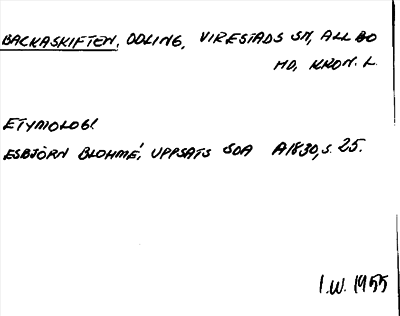 BACKASKIFTEN, ODLING, VIRESTADS SN, ALLBO
HD, KRON. L.
ETYMOLOGI
ESBJÖRN BLOHMÉ, UPPSATS SOA A1830, S. 25.
I.W. 1955